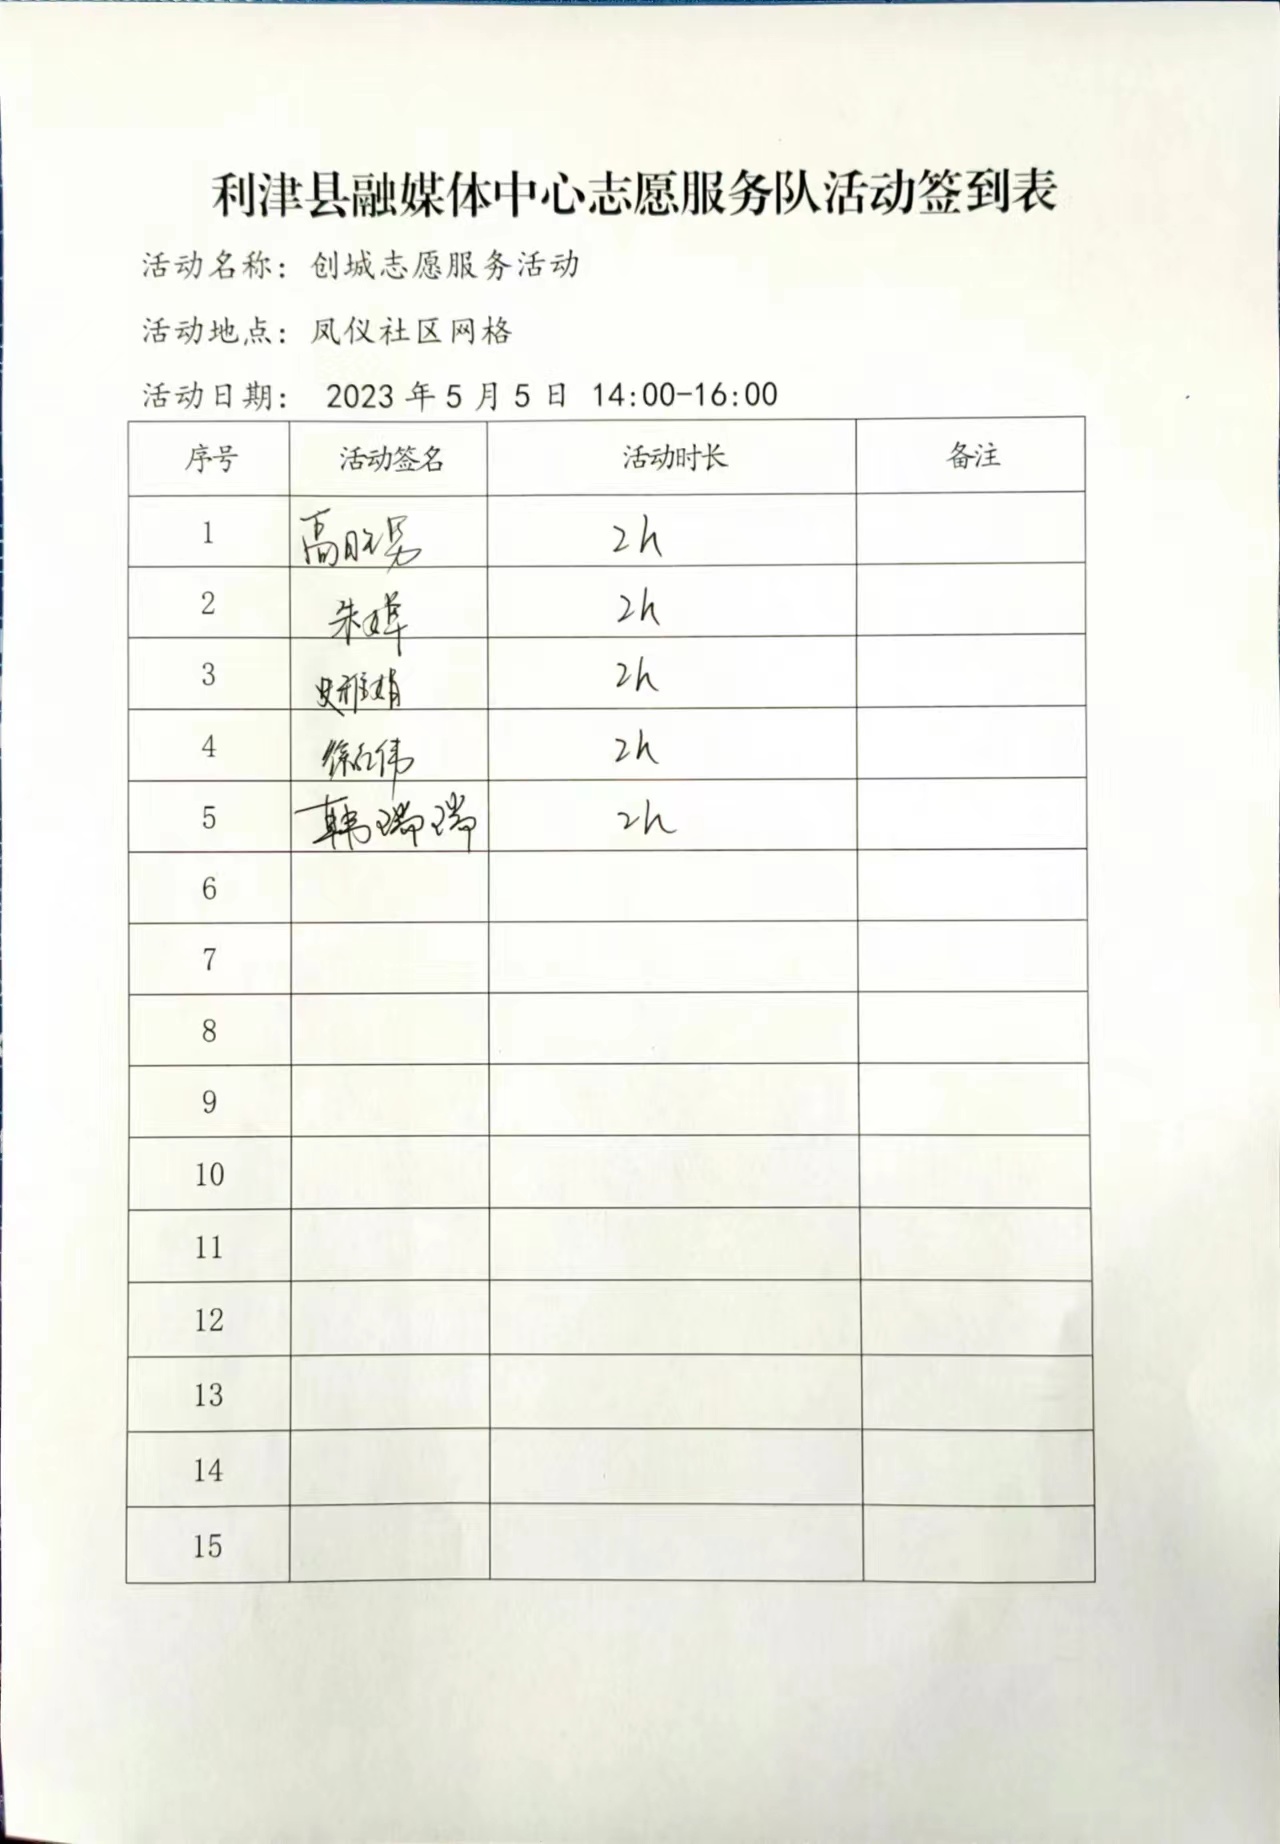 利津县融媒体中心志愿服务队活动签到表
活动名称：创城志愿服务活动
活动地点：凤仪社区网格
活动日期： 2023 年 5 月 5 日 14:00-16:00
序号 活动签名 活动时长 备注
1 2h
2 朱 2h
3 史雅娟 2h
4 徐红伟 2h
5 韩瑞瑞 2h
6
7
8
9
10
11
12
13
14
15